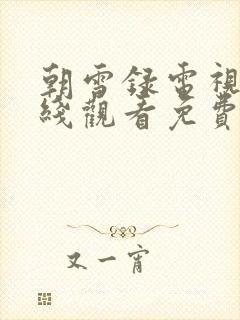 朝雪録電視
綫觀看免費
又一宵